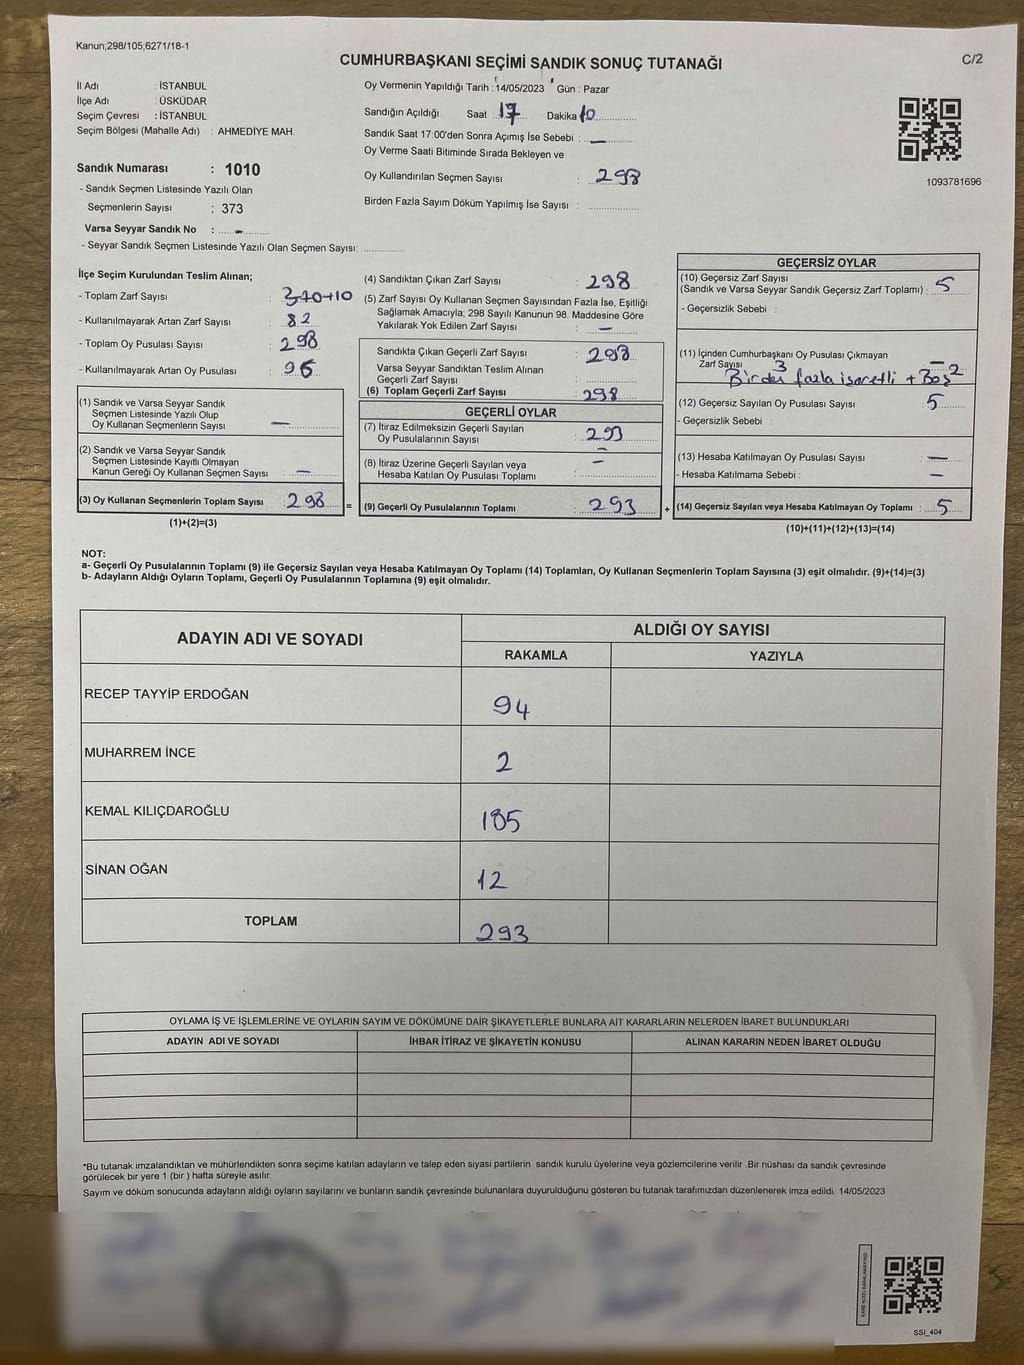 Kanun;298/105;6271/18-1
C/2
CUMHURBAŞKANI SEÇİMİ SANDIK SONUÇ TUTANAĞI
İl Adı : İSTANBUL
İlçe Adı : ÜSKÜDAR
Seçim Çevresi : İSTANBUL
Seçim Bölgesi (Mahalle Adı) : AHMEDİYE MAH.
Sandık Numarası : 1010
- Sandık Seçmen Listesinde Yazılı Olan
Seçmenlerin Sayısı : 373
Varsa Seyyar Sandık No : -
- Seyyar Sandık Seçmen Listesinde Yazılı Olan Seçmen Sayısı:
Oy Vermenin Yapıldığı Tarih : 14/05/2023 Gün : Pazar
Sandığın Açıldığı Saat 17 Dakika 10
Sandık Saat 17:00'den Sonra Açımış İse Sebebi : -
Oy Verme Saati Bitiminde Sırada Bekleyen ve
Oy Kullandırılan Seçmen Sayısı : 298
Birden Fazla Sayım Döküm Yapılmış İse Sayısı :
1093781696
İlçe Seçim Kurulundan Teslim Alınan;
- Toplam Zarf Sayısı : 370+10
- Kullanılmayarak Artan Zarf Sayısı : 82
- Toplam Oy Pusulası Sayısı : 298
- Kullanılmayarak Artan Oy Pusulası : 96
(1) Sandık ve Varsa Seyyar Sandık
Seçmen Listesinde Yazılı Olup
Oy Kullanan Seçmenlerin Sayısı : -
(2) Sandık ve Varsa Seyyar Sandık
Seçmen Listesinde Kayıtlı Olmayan
Kanun Gereği Oy Kullanan Seçmen Sayısı : -
(3) Oy Kullanan Seçmenlerin Toplam Sayısı : 298 =
(1)+(2)=(3)
(4) Sandıktan Çıkan Zarf Sayısı : 298
(5) Zarf Sayısı Oy Kullanan Seçmen Sayısından Fazla İse, Eşitliği
Sağlamak Amacıyla; 298 Sayılı Kanunun 98. Maddesine Göre
Yakılarak Yok Edilen Zarf Sayısı : -
Sandıkta Çıkan Geçerli Zarf Sayısı : 298
Varsa Seyyar Sandıktan Teslim Alınan
Geçerli Zarf Sayısı :
(6) Toplam Geçerli Zarf Sayısı : 298
GEÇERLİ OYLAR
(7) İtiraz Edilmeksizin Geçerli Sayılan
Oy Pusulalarının Sayısı : 293
(8) İtiraz Üzerine Geçerli Sayılan veya
Hesaba Katılan Oy Pusulası Toplamı : -
(9) Geçerli Oy Pusulalarının Toplamı : 293 +
GEÇERSİZ OYLAR
(10) Geçersiz Zarf Sayısı
(Sandık ve Varsa Seyyar Sandık Geçersiz Zarf Toplamı) : 5
- Geçersizlik Sebebi :
(11) İçinden Cumhurbaşkanı Oy Pusulası Çıkmayan
Zarf Sayısı : -
3 Birden fazla işaretli + Boş 2
(12) Geçersiz Sayılan Oy Pusulası Sayısı : 5
- Geçersizlik Sebebi :
(13) Hesaba Katılmayan Oy Pusulası Sayısı : -
- Hesaba Katılmama Sebebi : -
(14) Geçersiz Sayılan veya Hesaba Katılmayan Oy Toplamı : 5
(10)+(11)+(12)+(13)=(14)
NOT:
a- Geçerli Oy Pusulalarının Toplamı (9) ile Geçersiz Sayılan veya Hesaba Katılmayan Oy Toplamı (14) Toplamları, Oy Kullanan Seçmenlerin Toplam Sayısına (3) eşit olmalıdır. (9)+(14)=(3)
b- Adayların Aldığı Oyların Toplamı, Geçerli Oy Pusulalarının Toplamına (9) eşit olmalıdır.
ADAYIN ADI VE SOYADI
ALDIĞI OY SAYISI
RAKAMLA YAZIYLA
RECEP TAYYİP ERDOĞAN 94
MUHARREM İNCE 2
KEMAL KILIÇDAROĞLU 185
SİNAN OĞAN 12
TOPLAM 293
OYLAMA İŞ VE İŞLEMLERİNE VE OYLARIN SAYIM VE DÖKÜMÜNE DAİR ŞİKAYETLERLE BUNLARA AİT KARARLARIN NELERDEN İBARET BULUNDUKLARI
ADAYIN ADI VE SOYADI İHBAR İTİRAZ VE ŞİKAYETİN KONUSU ALINAN KARARIN NEDEN İBARET OLDUĞU
*Bu tutanak imzalandıktan ve mühürlendikten sonra seçime katılan adayların ve talep eden siyasi partilerin sandık kurulu üyelerine veya gözlemcilerine verilir .Bir nüshası da sandık çevresinde
görülecek bir yere 1 (bir ) hafta süreyle asılır.
Sayım ve döküm sonucunda adayların aldığı oyların sayılarını ve bunların sandık çevresinde bulunanlara duyurulduğunu gösteren bu tutanak tarafımızdan düzenlenerek imza edildi. 14/05/2023
SSI_404